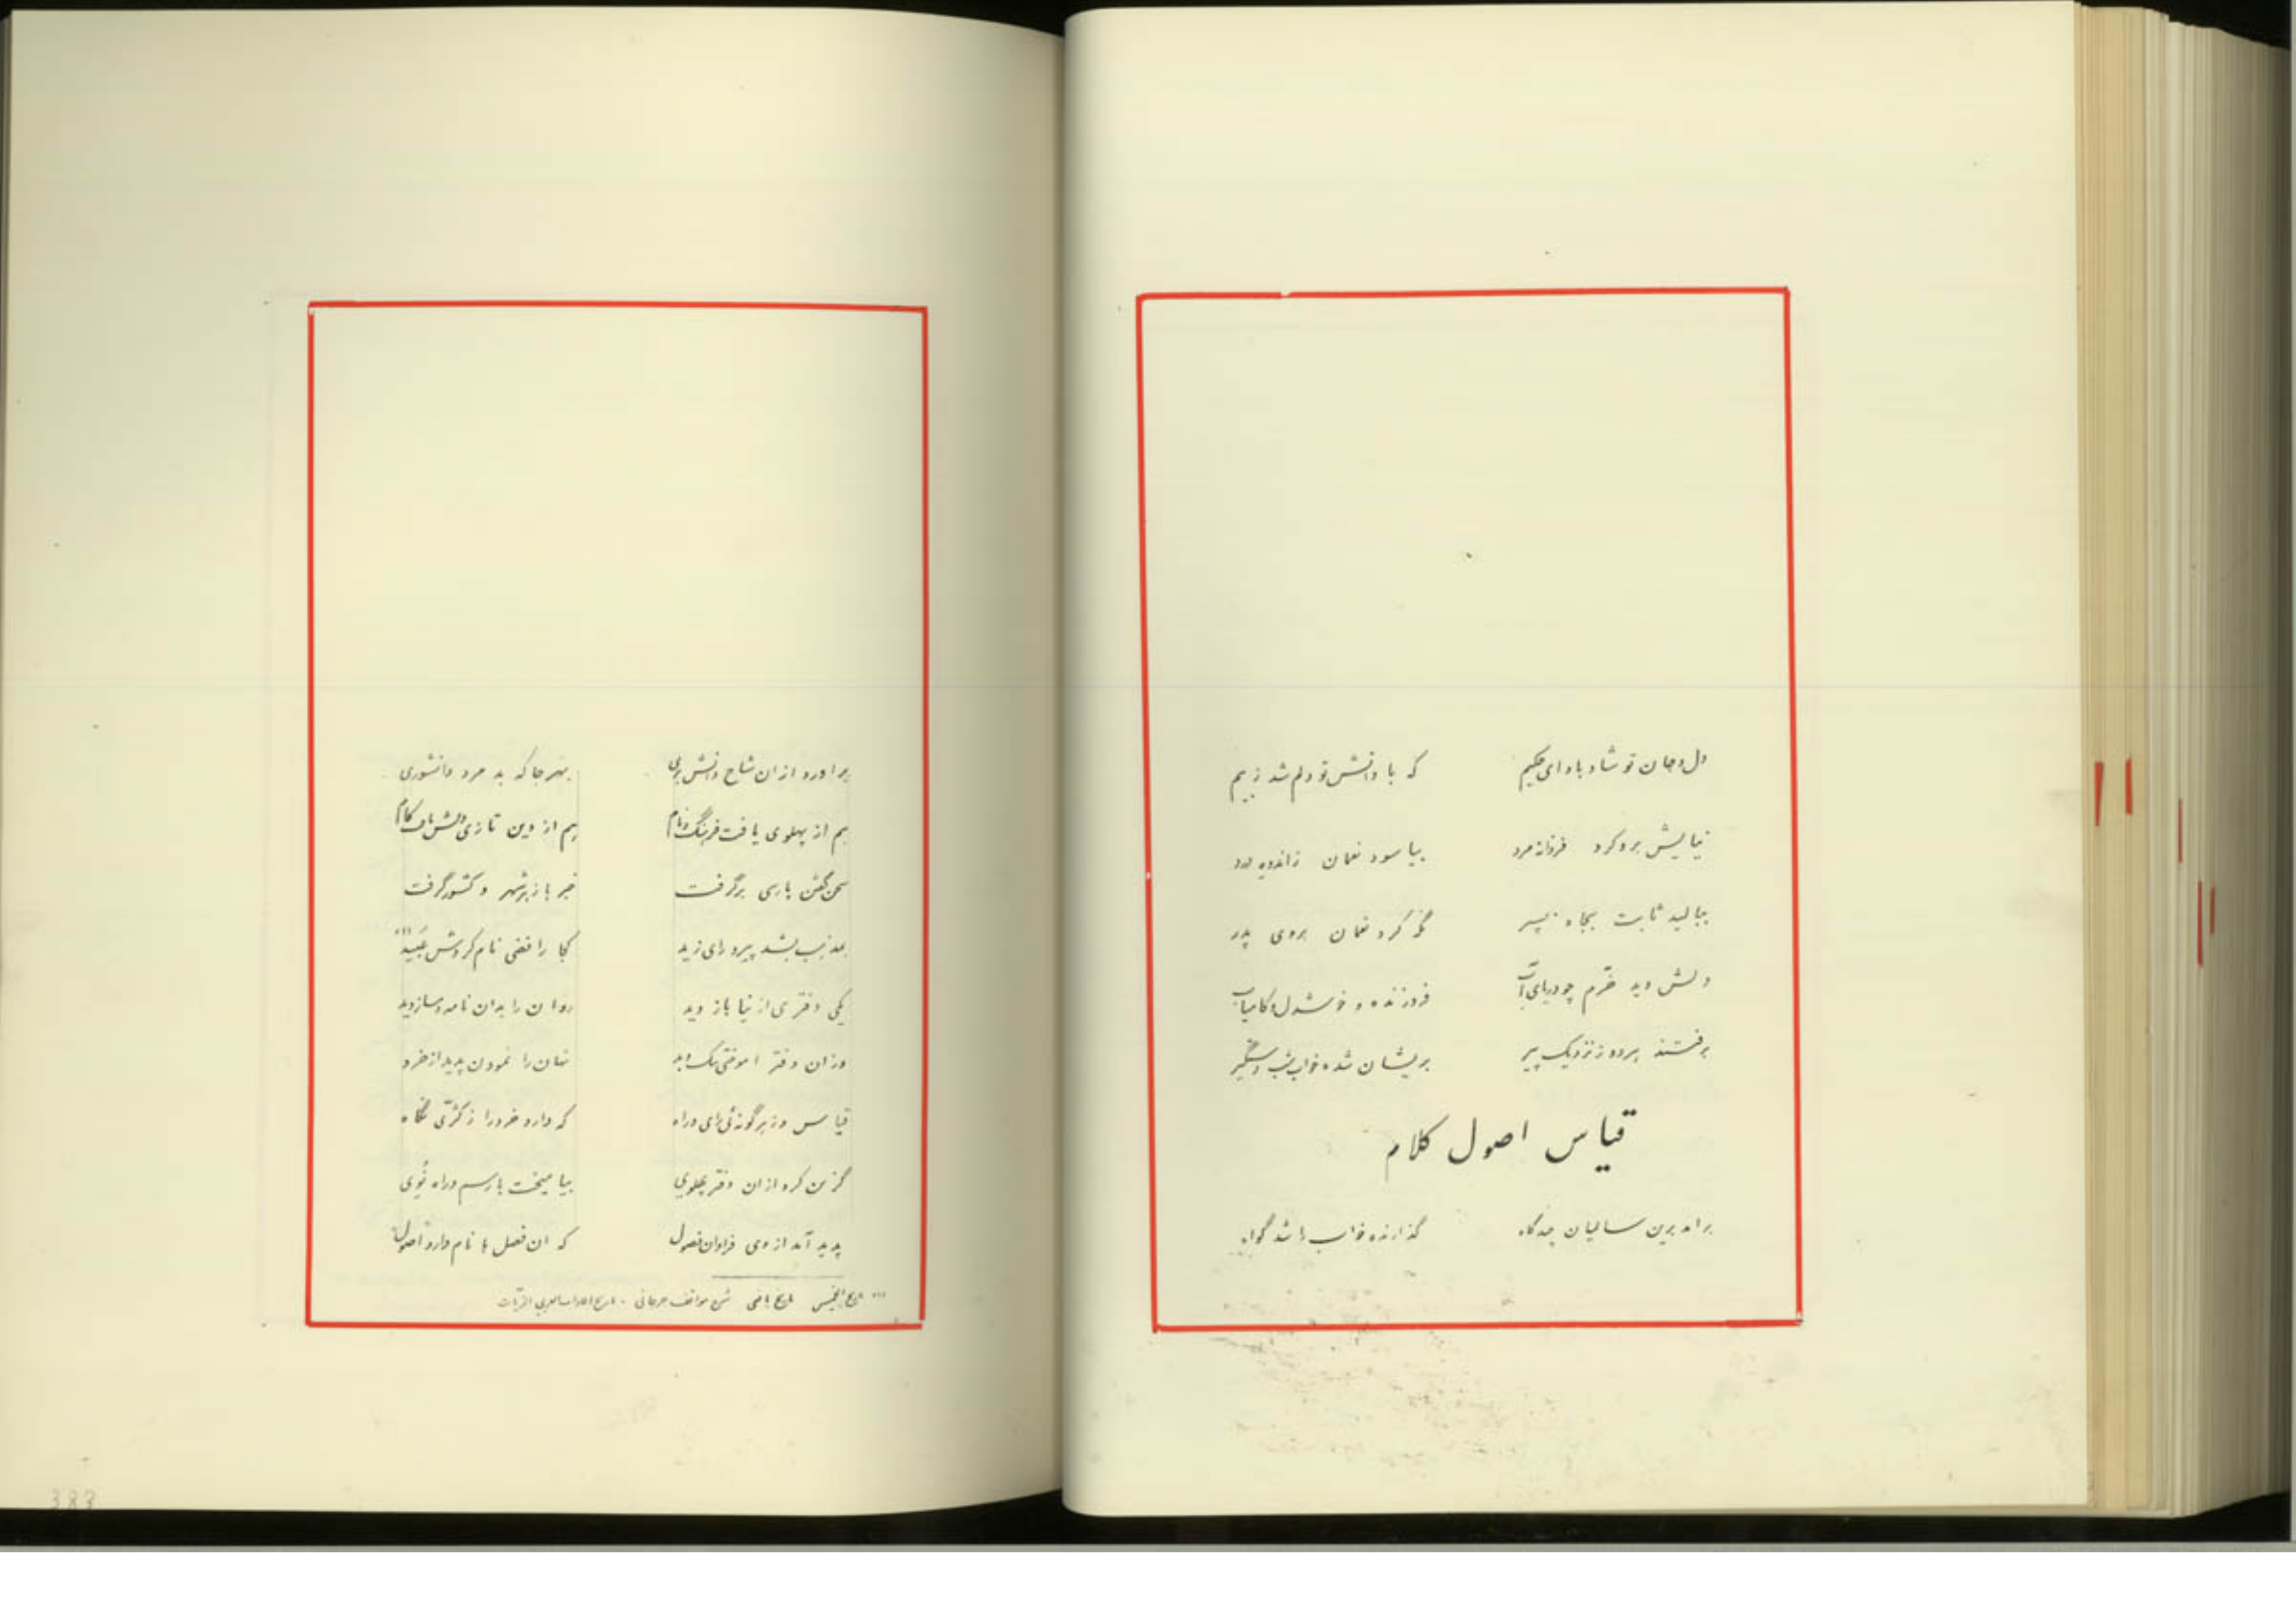 دل و جان تو شاد باد ای حکیم که با دانش تو دلم شد ز بیم
نیایش برو کرد فرزانه مرد بیاسود نعمان ز اندوه و درد
ببالید ثابت بجاه پسر نگه کرد نعمان بروی پدر
دلش دید خرّم چو دریای آب فروزنده و خوشدل و کامیاب
برفتند هر دو ز نزدیک پیر پریشان شده خواب شب
قیاس اصول کلام
برامد برین سالیان چندگاه گذارنده خواب باشد گواه
براورد ازان شاخ دانش بری بهر جا که بد مرد دانشوری
هم از پهلوی یافت فرهنگ و نام هم از دین تازی دلش یافت کام
سخن گفتن پارسی برگرفت خبر باز هر شهر و کشور گرفت
بمذهب بشد پیرو رای زید کجا رافضی نام کردش عُبید
یکی دفتری از نیا باز دید روان را بدان نامه دمساز دید
وزان دفتر اموختی نیک و بد نهان را نمودن پدید از خرد
قیاس و ز هر گونه‌ئی رای و راه که دارد خرد را ز کژّی نگاه
گزین کرد ازان دفتر پهلوی بیامیخت با رسم و راه نُوی
پدید آمد از وی فراوان فصول که ان فصل ها نام دارد اصول
تاریخ الخمیس تاریخ یافعی شرح مواقف جرجانی - تاریخ اداب
383